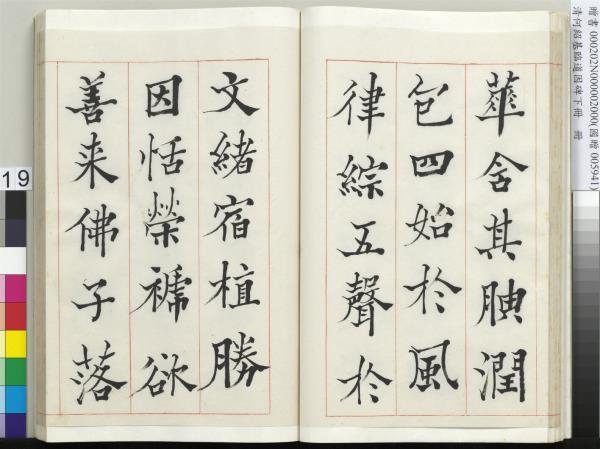 華含其腴潤
包四始於風
律綜五聲於
文緒宿植勝
因恬榮褫欲
善来佛子落
贈書 000202N000002000(國贈 005941)
清何紹基臨道因碑下冊 冊
19